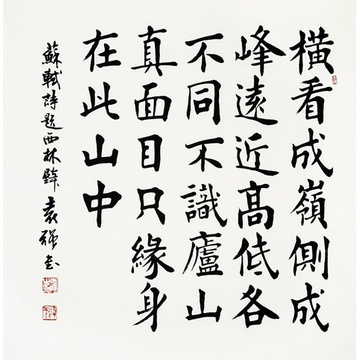 橫看成嶺側成
峰遠近高低各
不同不識廬山
真面目只緣身
在此山中
蘇軾詩題西林壁 袁強書